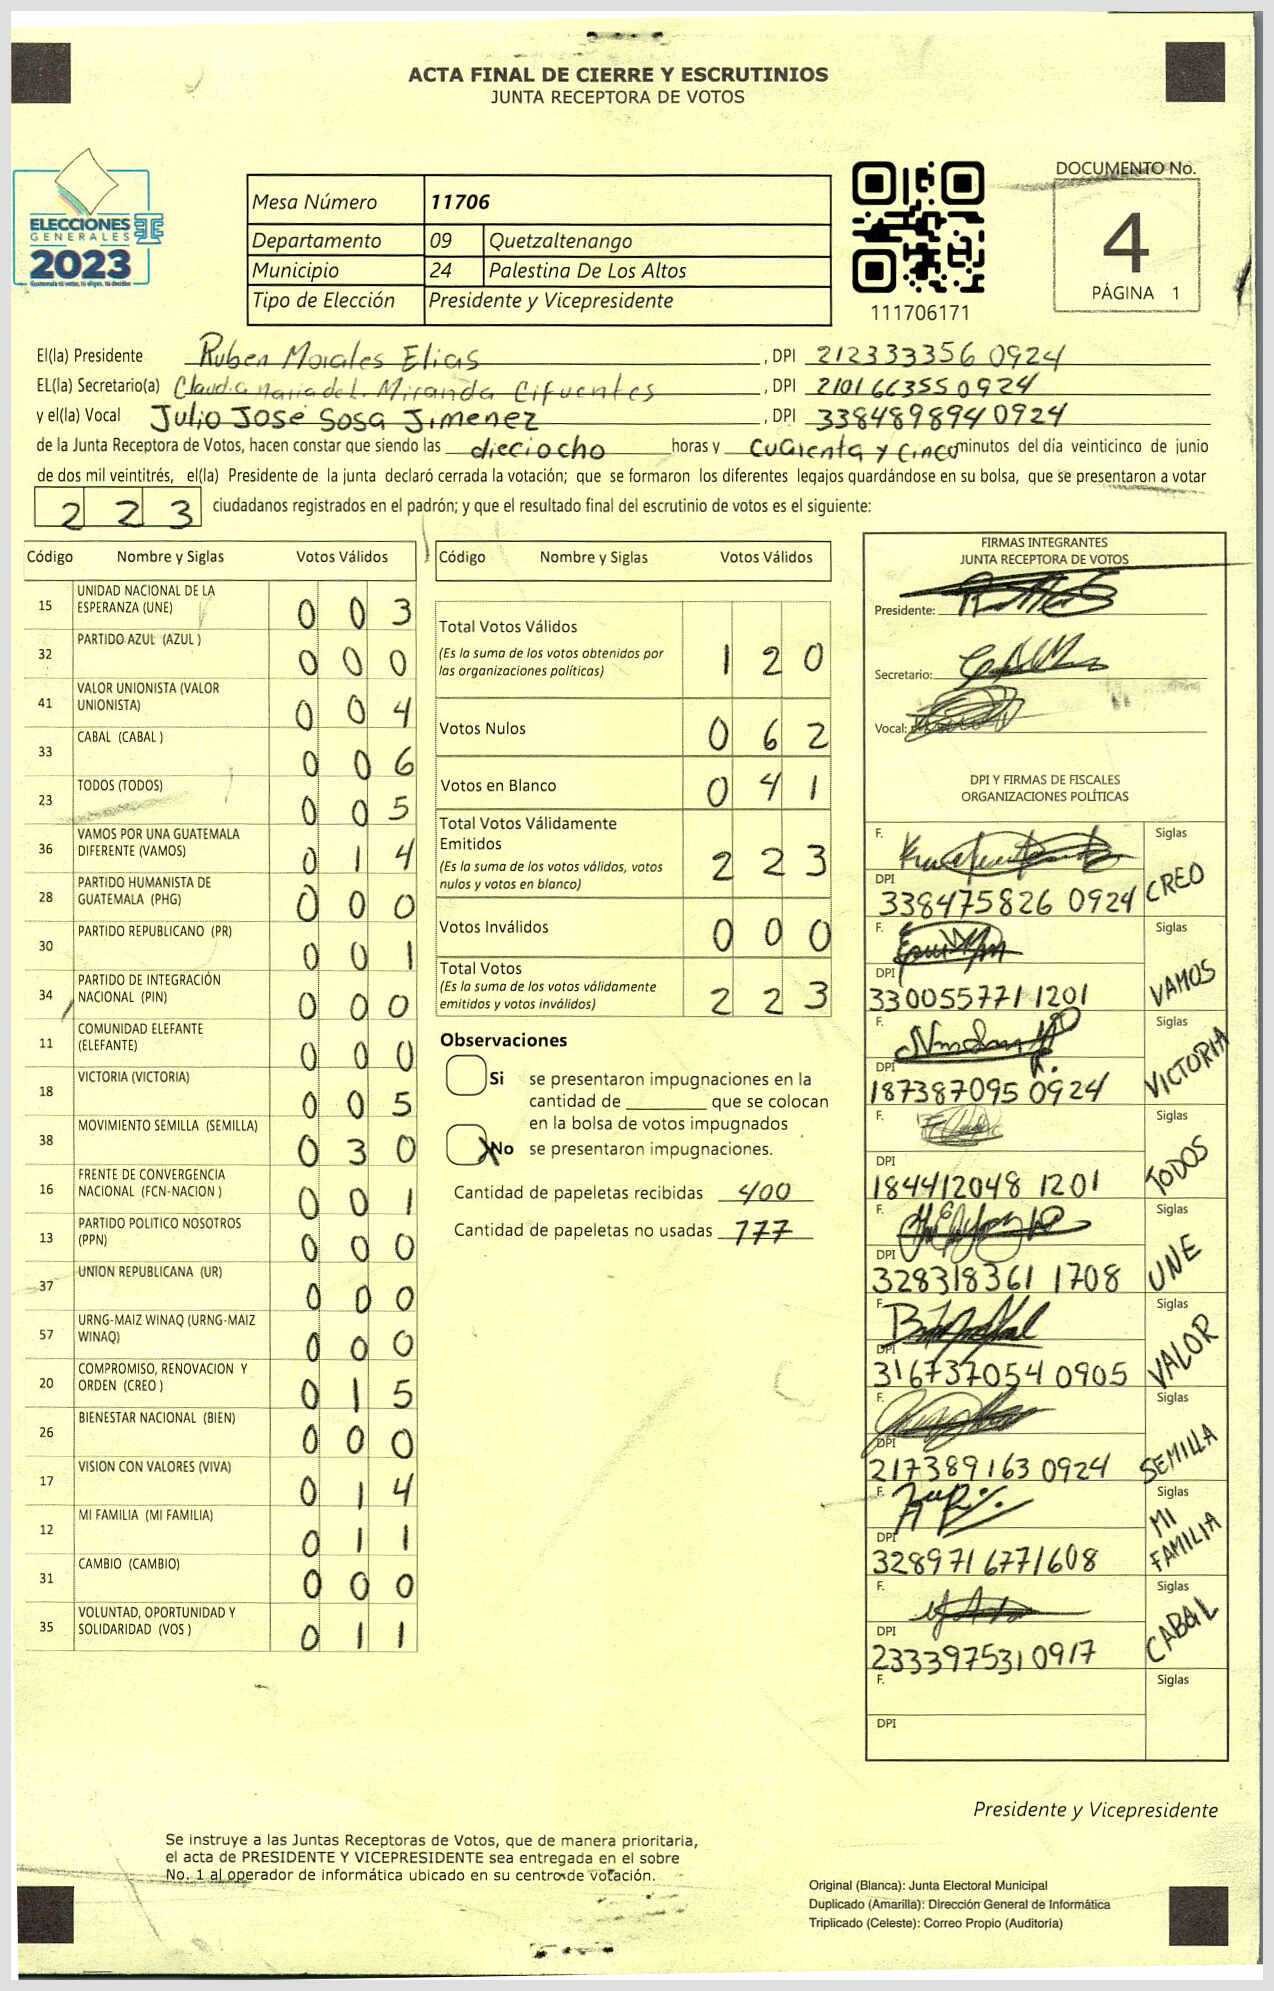 ACTA FINAL DE CIERRE Y ESCRUTINIOS
JUNTA RECEPTORA DE VOTOS
ELECCIONES
GENERALES
2023
Mesa Número 11706
Departamento 09 Quetzaltenango
Municipio 24 Palestina De Los Altos
Tipo de Elección Presidente y Vicepresidente
111706171
DOCUMENTO No.
4
PÁGINA 1
El(la) Presidente Ruben Morales Elias, DPI 212333356 0924
EL(la) Secretario(a) Claudia Maria del Miranda Cifuentes, DPI 210166355 0924
y el(la) Vocal Julio José Sosa Jimenez, DPI 338489894 0924
de la Junta Receptora de Votos, hacen constar que siendo las dieciocho horas y cuarenta y cinco minutos del día veinticinco de junio
de dos mil veintitrés, el(la) Presidente de la junta declaró cerrada la votación; que se formaron los diferentes legajos guardándose en su bolsa, que se presentaron a votar
2 2 3 ciudadanos registrados en el padrón; y que el resultado final del escrutinio de votos es el siguiente:
Código Nombre y Siglas Votos Válidos
15 UNIDAD NACIONAL DE LA
ESPERANZA (UNE) 0 0 3
32 PARTIDO AZUL (AZUL ) 0 0 0
41 VALOR UNIONISTA (VALOR
UNIONISTA) 0 0 4
33 CABAL (CABAL ) 0 0 6
23 TODOS (TODOS) 0 0 5
36 VAMOS POR UNA GUATEMALA
DIFERENTE (VAMOS) 0 1 4
28 PARTIDO HUMANISTA DE
GUATEMALA (PHG) 0 0 0
30 PARTIDO REPUBLICANO (PR) 0 0 1
34 PARTIDO DE INTEGRACIÓN
NACIONAL (PIN) 0 0 0
11 COMUNIDAD ELEFANTE
(ELEFANTE) 0 0 0
18 VICTORIA (VICTORIA) 0 0 5
38 MOVIMIENTO SEMILLA (SEMILLA) 0 3 0
16 FRENTE DE CONVERGENCIA
NACIONAL (FCN-NACION ) 0 0 1
13 PARTIDO POLITICO NOSOTROS
(PPN) 0 0 0
37 UNION REPUBLICANA (UR) 0 0 0
57 URNG-MAIZ WINAQ (URNG-MAIZ
WINAQ) 0 0 0
20 COMPROMISO, RENOVACION Y
ORDEN (CREO ) 0 1 5
26 BIENESTAR NACIONAL (BIEN) 0 0 0
17 VISION CON VALORES (VIVA) 0 1 4
12 MI FAMILIA (MI FAMILIA) 0 1 1
31 CAMBIO (CAMBIO) 0 0 0
35 VOLUNTAD, OPORTUNIDAD Y
SOLIDARIDAD (VOS ) 0 1 1
Código Nombre y Siglas Votos Válidos
Total Votos Válidos 1 2 0
(Es la suma de los votos obtenidos por
las organizaciones políticas)
Votos Nulos 0 6 2
Votos en Blanco 0 4 1
Total Votos Válidamente
Emitidos 2 2 3
(Es la suma de los votos válidos, votos
nulos y votos en blanco)
Votos Inválidos 0 0 0
Total Votos 2 2 3
(Es la suma de los votos válidamente
emitidos y votos inválidos)
Observaciones
Si se presentaron impugnaciones en la
cantidad de ________ que se colocan
en la bolsa de votos impugnados
No se presentaron impugnaciones.
Cantidad de papeletas recibidas 400
Cantidad de papeletas no usadas 777
FIRMAS INTEGRANTES
JUNTA RECEPTORA DE VOTOS
Presidente:
Secretario:
Vocal:
DPI Y FIRMAS DE FISCALES
ORGANIZACIONES POLÍTICAS
F. Siglas
DPI 338475826 0924 CREO
F. Siglas
DPI 330055771 1201 VAMOS
F. Siglas
DPI 187387095 0924 VICTORIA
F. Siglas
DPI 184412048 1201 TODOS
F. Siglas
DPI 328318361 1708 UNE
F. Siglas
DPI 316737054 0905 VALOR
F. Siglas
DPI 217389163 0924 SEMILLA
F. Siglas
DPI 3289716771608 MI FAMILIA
F. Siglas
DPI 2333975310917 CABAL
F. Siglas
DPI
Presidente y Vicepresidente
Se instruye a las Juntas Receptoras de Votos, que de manera prioritaria,
el acta de PRESIDENTE Y VICEPRESIDENTE sea entregada en el sobre
No. 1 al operador de informática ubicado en su centro de votación.
Original (Blanca): Junta Electoral Municipal
Duplicado (Amarilla): Dirección General de Informática
Triplicado (Celeste): Correo Propio (Auditoría)